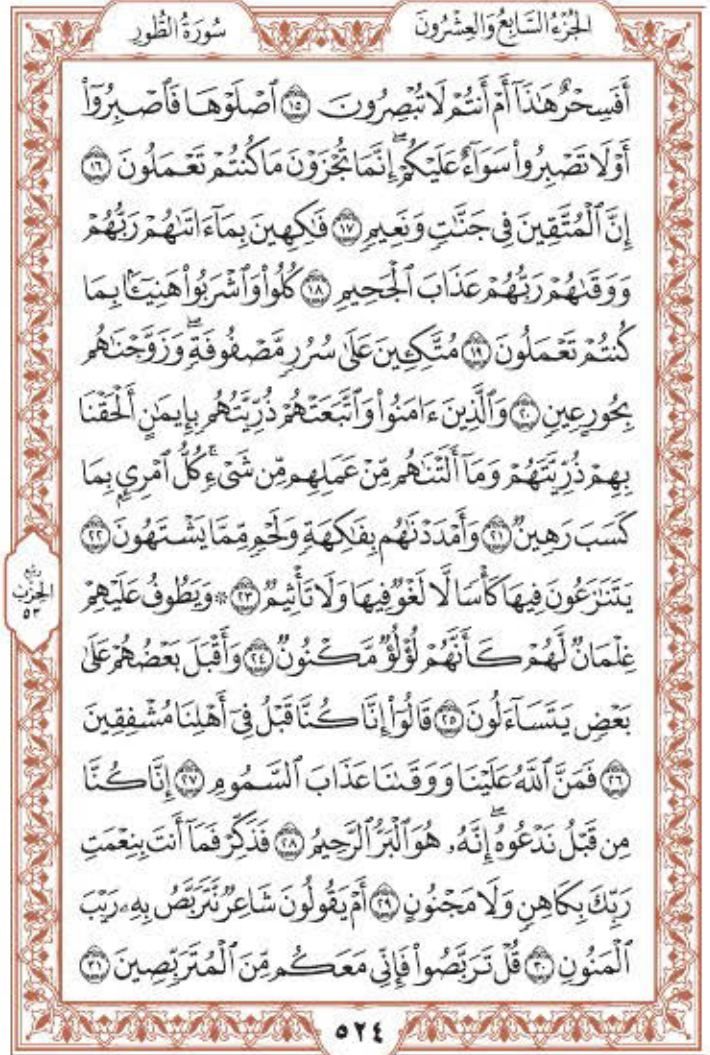 سُورَةُ الطُّورِ
الجُزْءُ السَّابِعُ وَالعِشْرُونَ
أَفَسِحْرٌ هَٰذَآ أَمْ أَنتُمْ لَا تُبْصِرُونَ ١٥ ٱصْلَوْهَا فَٱصْبِرُوٓا۟
أَوْ لَا تَصْبِرُوا۟ سَوَآءٌ عَلَيْكُمْ ۖ إِنَّمَا تُجْزَوْنَ مَا كُنتُمْ تَعْمَلُونَ ١٦
إِنَّ ٱلْمُتَّقِينَ فِى جَنَّٰتٍ وَنَعِيمٍ ١٧ فَٰكِهِينَ بِمَآ ءَاتَىٰهُمْ رَبُّهُمْ
وَوَقَىٰهُمْ رَبُّهُمْ عَذَابَ ٱلْجَحِيمِ ١٨ كُلُوا۟ وَٱشْرَبُوا۟ هَنِيٓـًٔۢا بِمَا
كُنتُمْ تَعْمَلُونَ ١٩ مُتَّكِـِٔينَ عَلَىٰ سُرُرٍ مَّصْفُوفَةٍ ۖ وَزَوَّجْنَٰهُم
بِحُورٍ عِينٍ ٢٠ وَٱلَّذِينَ ءَامَنُوا۟ وَٱتَّبَعَتْهُمْ ذُرِّيَّتُهُم بِإِيمَٰنٍ أَلْحَقْنَا
بِهِمْ ذُرِّيَّتَهُمْ وَمَآ أَلَتْنَٰهُم مِّنْ عَمَلِهِم مِّن شَىْءٍ ۚ كُلُّ ٱمْرِئٍۭ بِمَا
كَسَبَ رَهِينٌ ٢١ وَأَمْدَدْنَٰهُم بِفَٰكِهَةٍ وَلَحْمٍ مِّمَّا يَشْتَهُونَ ٢٢
يَتَنَٰزَعُونَ فِيهَا كَأْسًا لَّا لَغْوٌ فِيهَا وَلَا تَأْثِيمٌ ٢٣ ۞ وَيَطُوفُ عَلَيْهِمْ
غِلْمَانٌ لَّهُمْ كَأَنَّهُمْ لُؤْلُؤٌ مَّكْنُونٌ ٢٤ وَأَقْبَلَ بَعْضُهُمْ عَلَىٰ
بَعْضٍ يَتَسَآءَلُونَ ٢٥ قَالُوٓا۟ إِنَّا كُنَّا قَبْلُ فِىٓ أَهْلِنَا مُشْفِقِينَ
٢٦ فَمَنَّ ٱللَّهُ عَلَيْنَا وَوَقَىٰنَا عَذَابَ ٱلسَّمُومِ ٢٧ إِنَّا كُنَّا
مِن قَبْلُ نَدْعُوهُ ۖ إِنَّهُۥ هُوَ ٱلْبَرُّ ٱلرَّحِيمُ ٢٨ فَذَكِّرْ فَمَآ أَنتَ بِنِعْمَتِ
رَبِّكَ بِكَاهِنٍ وَلَا مَجْنُونٍ ٢٩ أَمْ يَقُولُونَ شَاعِرٌ نَّتَرَبَّصُ بِهِۦ رَيْبَ
ٱلْمَنُونِ ٣٠ قُلْ تَرَبَّصُوا۟ فَإِنِّى مَعَكُم مِّنَ ٱلْمُتَرَبِّصِينَ ٣١
رُبْع
الحِزْب
٥٣
٥٢٤